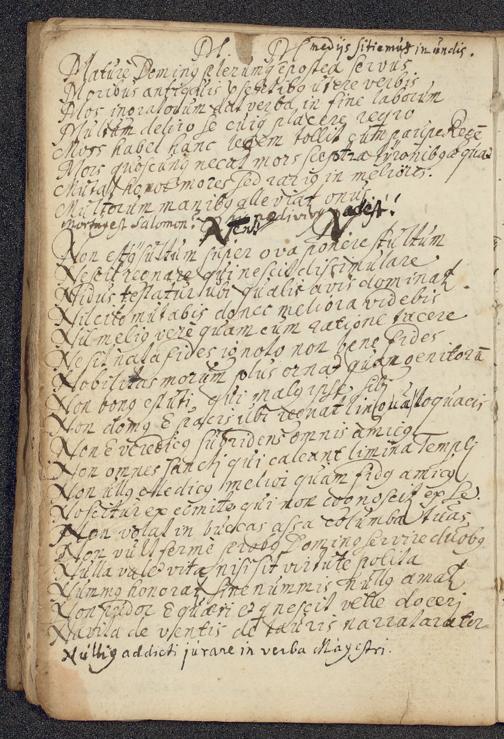 M. M medijs sitiemus in undis.
Mature Doming plerumq postea servus
Moribus antiqalis psentibq utere verbis
Mos in oratorum dat verba in fine laborum
Multum deliro se cuiq placere reqro
Mors habet hanc legem tollit cum paupe Regē
Mors quoscunq necat mors sceptra lygonibq æquat
Mutat honor mores sed rariq in meliores.
Multorum manibq alleviat onus
Mortuq est Salomon! redivivq Adest!
Non esto stultum super ova ponere stultum
Nescit regnare qui nescit dissimulare
Nidus testatur ubi qualis avis dominat
Nil cito mutabis donec meliora videbis
Nil meliq vere quam cum ratione tacere
Nescit nata fides ignoto non bene fides
Nobilitas morum plus ornat quam genitorū
Non bonq est uti qui malq ipse sibi
Non domq ē pacis ubi regnat lingua loquacis
Non ē veredicq subridens omnis amicq
Non omnes sancti qui calcant limina Templi
Non ullq Medicq melior quam fidq amicq
Noscitur ex comite qui non cognoscit ex se
Non volat in buccas assa columba tuas
Non vult ferme probq Dominq servire duobq
Nulla valet vita nisi sit virtute polita
Nummq honorat sine nummis nullq amat
Non pudor ē quæri eq nescit velle doceri
Navita de ventis de tauris narrat arater
Nulliq addicti jurare in verba Magestri.